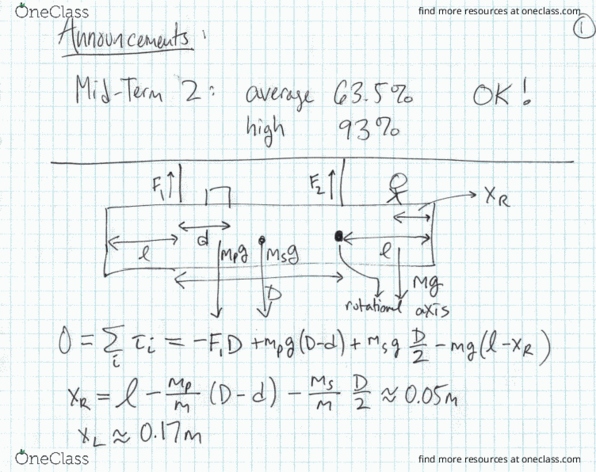 OneClass
find more resources at oneclass.com
Announcements:
①
Mid-Term 2: average 63.5% OK!
high 93%
F₁↑ F₂↑ → X_R
l d m_pg M_sg l
D Mg
rotational axis
0 = ∑_i τ_i = -F₁D + m_pg(D-d) + m_sg D/2 - mg(l-x_R)
X_R = l - m_p/m (D-d) - m_s/m D/2 ≈ 0.05m
X_L ≈ 0.17m
OneClass
find more resources at oneclass.com